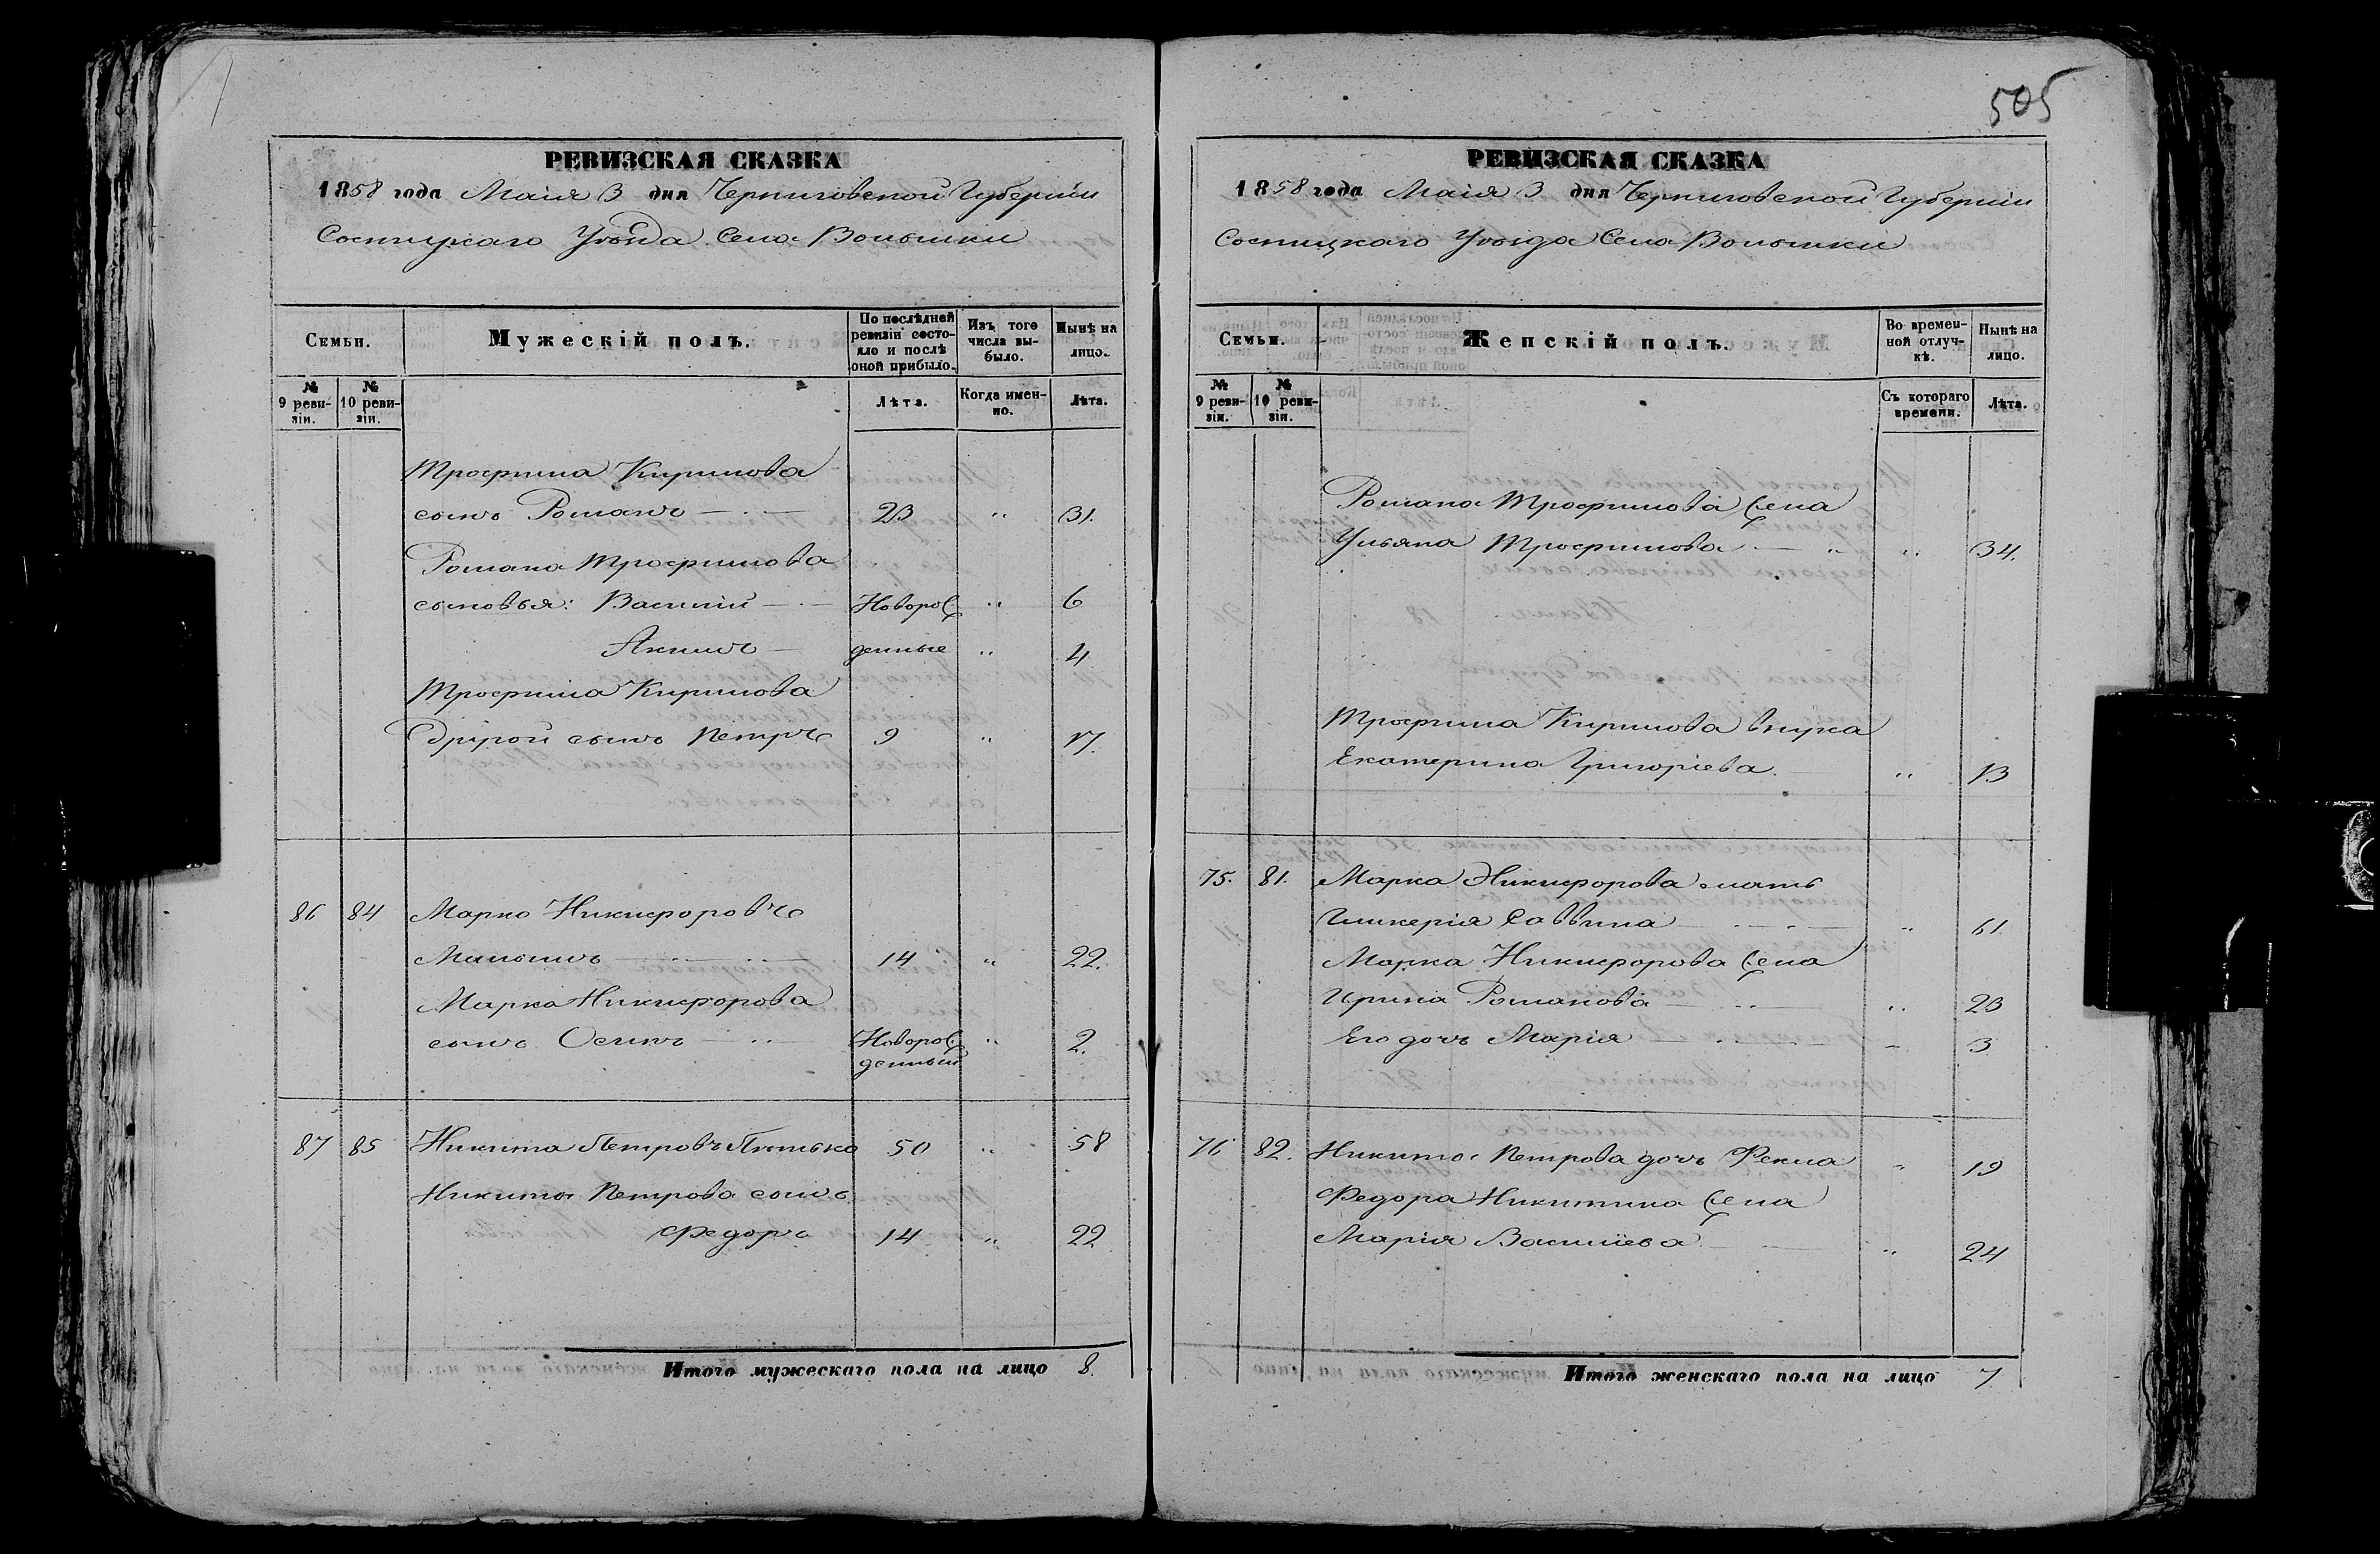 505
РЕВИЗСКАЯ СКАЗКА
1858 года Маія 3 дня Черниговской Губерніи
Сосницкаго Уѣзда Села Волынки
Семьи.
Мужескій полъ.
По послѣдней ревизіи состояло и послѣ оной прибыло.
Изъ того числа выбыло.
Нынѣ на лицо.
№ 9 ревизіи.
№ 10 ревизіи.
Лѣта.
Когда именно.
Лѣта.
Трофима Кирилова
сынъ Романъ 23 " 31.
Романа Трофимова
сыновья: Василий Новорож " 6
Акимъ денные " 4
Трофима Кирилова
Другой сынъ Петръ 9 " 17.
86 84 Марко Никифоровъ
14 " 22.
Марка Никифорова
сынъ Осипъ Новорож " 2.
денный
87 85 Никита Петровъ 50 " 58
Никиты Петрова сынъ
Федоръ 14 " 22
Итого мужескаго пола на лицо 8.
РЕВИЗСКАЯ СКАЗКА
1858 года Маія 3 дня Черниговской Губерніи
Сосницкаго Уѣзда Села Волынки
Семьи.
Женскій полъ.
Во временной отлучкѣ.
Нынѣ на лицо.
№ 9 ревизіи.
№ 10 ревизіи.
Съ котораго времени.
Лѣта.
Романа Трофимова жена
Ульяна Трофимова " 34.
Трофима Кирилова внука
Екатерина Григоріева " 13
75. 81. Марка Никифорова мать
Гликерія Саввина " 61.
Марка Никифорова жена
Ирина Романова " 23
Его дочь Марія " 3
76 82. Никиты Петрова дочь Фекла " 19
Федора Никитина жена
Марія Василіева " 24
Итого женскаго пола на лицо 7